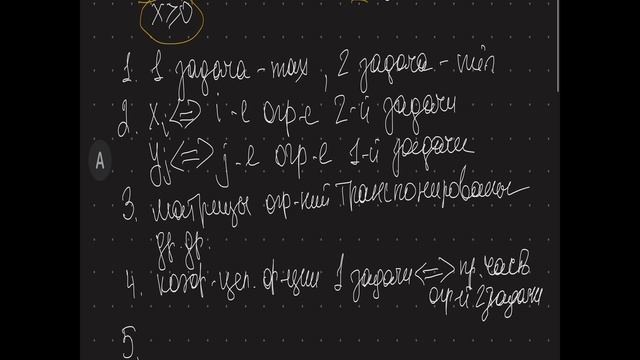 x≥0
1. 1 задача - max, 2 задача - min
2. xᵢ <=> i-е огр-е 2-й задачи
yⱼ <=> j-е огр-е 1-й задачи
3. матрицы огр-ний транспонированы
др. др.
4. коэф-цел. ф-ции 1 задачи <=> пр. часть
огр-й 2 задачи
5.
A